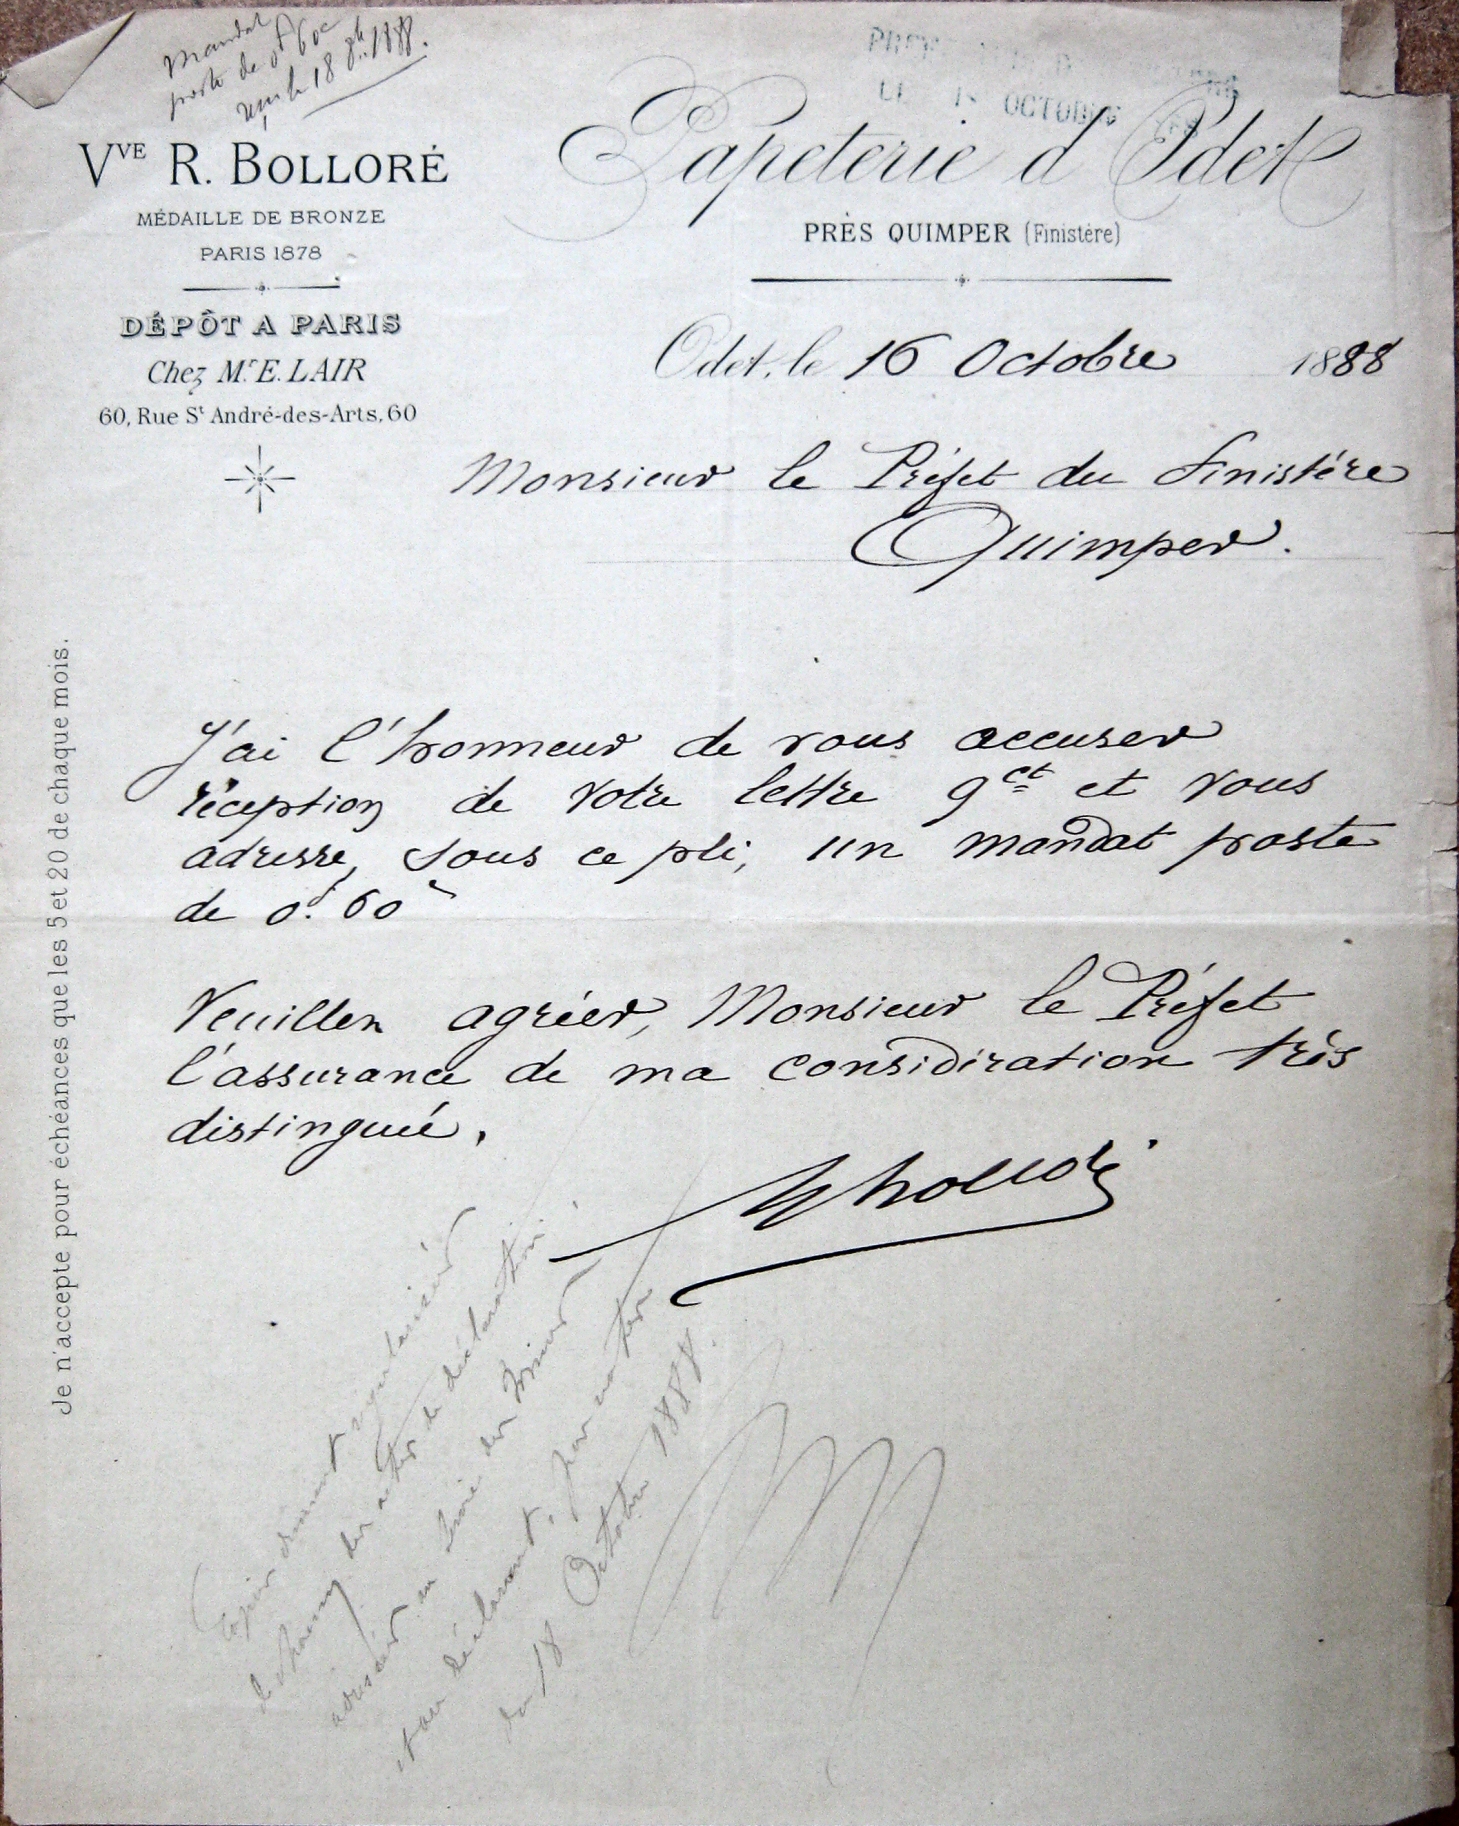 Mandat
poste de 0f 60c
reçu le 18 8bre 1888.
LE 1 OCTOBRE
VVE R. BOLLORÉ
MÉDAILLE DE BRONZE
PARIS 1878
DÉPÔT A PARIS
Chez Mr. E. LAIR
60, Rue St André-des-Arts, 60
Papeterie d'Odet
PRÈS QUIMPER (Finistère)
Odet, le 16 Octobre 1888
Monsieur le Préfet du Finistère
Quimper.
J'ai l'honneur de vous accuser
réception de votre lettre 9ct et vous
adresse, sous ce pli, un mandat poste
de 0f. 60c
Veuillez agréer, Monsieur le Préfet
l'assurance de ma considération très
distinguée.
Bolloré
Je n'accepte pour échéances que les 5 et 20 de chaque mois.
des actes de déclaration
au des Mines
et au déclarant, par
du 18 Octobre 1888.